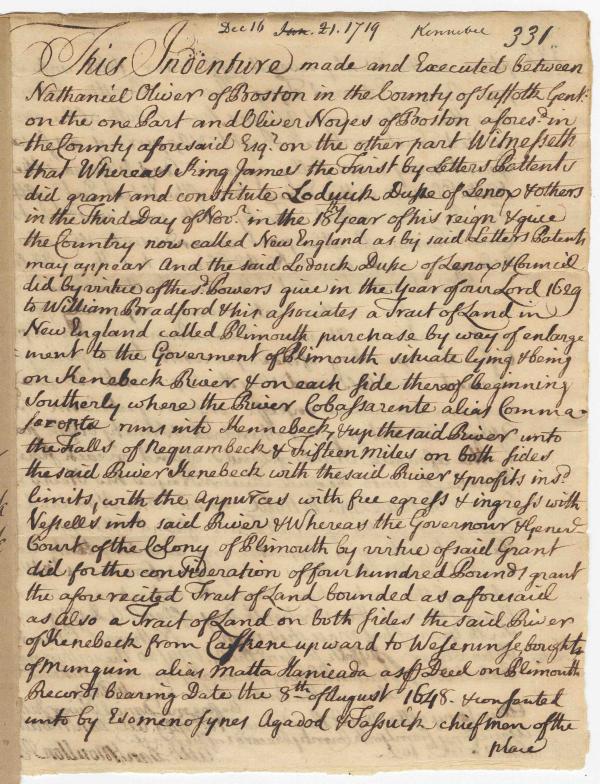 Dec 16 Jan. 21. 1719 Kennebec 331
This Indenture made and Executed between
Nathaniel Oliver of Boston in the County of Suffolk Gent:
on the one Part and Oliver Noyes of Boston afores:d in
the County aforesaid Esq:r on the other part Witnesseth
that Whereas King James the First by Letters Pattents
did grant and constitute Lodwick Duke of Lenox & others
in the Third Day of Nov:r in the 18th Year of his reign & give
the Country now called New England as by said Letters Patents
may appear And the said Lodwick Duke of Lenox & Council
did by virtue of this:d Powers give in the Year of our Lord 1629
to William Bradford & his associates a Tract of Land in
New England called Plimouth purchase by way of enlarge
ment to the Goverment of Plimouth situate lying & being
on Kenebeck River & on each side thereof beginning
Southerly where the River Cobassarente alias Comma-
seconte runs into Kennebeck, & up the said River unto
the Falls of Nequambeck & Fifteen Miles on both sides
the said River Kenebeck with the said River & profits in s:d
limits, with the Appurces with free egress & ingress with
Vessells into said River & Whereas the Governour & Gener:l
Court of the Colony of Plimouth by virtue of said Grant
did for the consideration of four hundred Pounds grant
the afore recited Tract of Land bounded as aforesaid
as also a Tract of Land on both sides the said River
of Kenebeck from Cashene upward to Wesserunse, bought
of Munquin alias Matta Hanieada as p Deed on Plimouth
Records bearing Date the 8th of August 1648. & consented
unto by Essmenosynes Agadod & Tassuck chief men of the
place